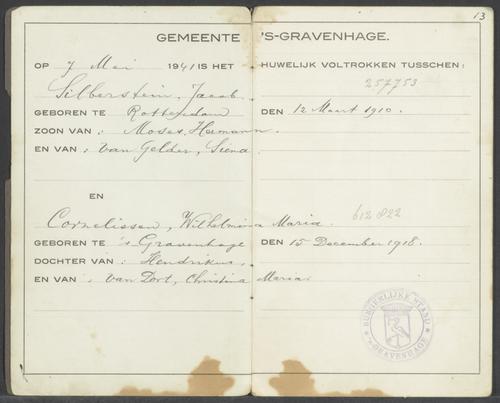 13
GEMEENTE 'S-GRAVENHAGE.
OP 7 Mei 1941 IS HET HUWELIJK VOLTROKKEN TUSSCHEN:
257753
Silberstein, Jacob
GEBOREN TE Rotterdam DEN 12 Maart 1910.
ZOON VAN: Mozes Hermann
EN VAN: van Gelder, Siena
EN
612822
Cornelissen, Wilhelmina Maria
GEBOREN TE 's Gravenhage DEN 15 December 1918.
DOCHTER VAN: Hendrikus,
EN VAN: van Dort, Christina Maria.
BURGERLIJKE STAND
'S-GRAVENHAGE